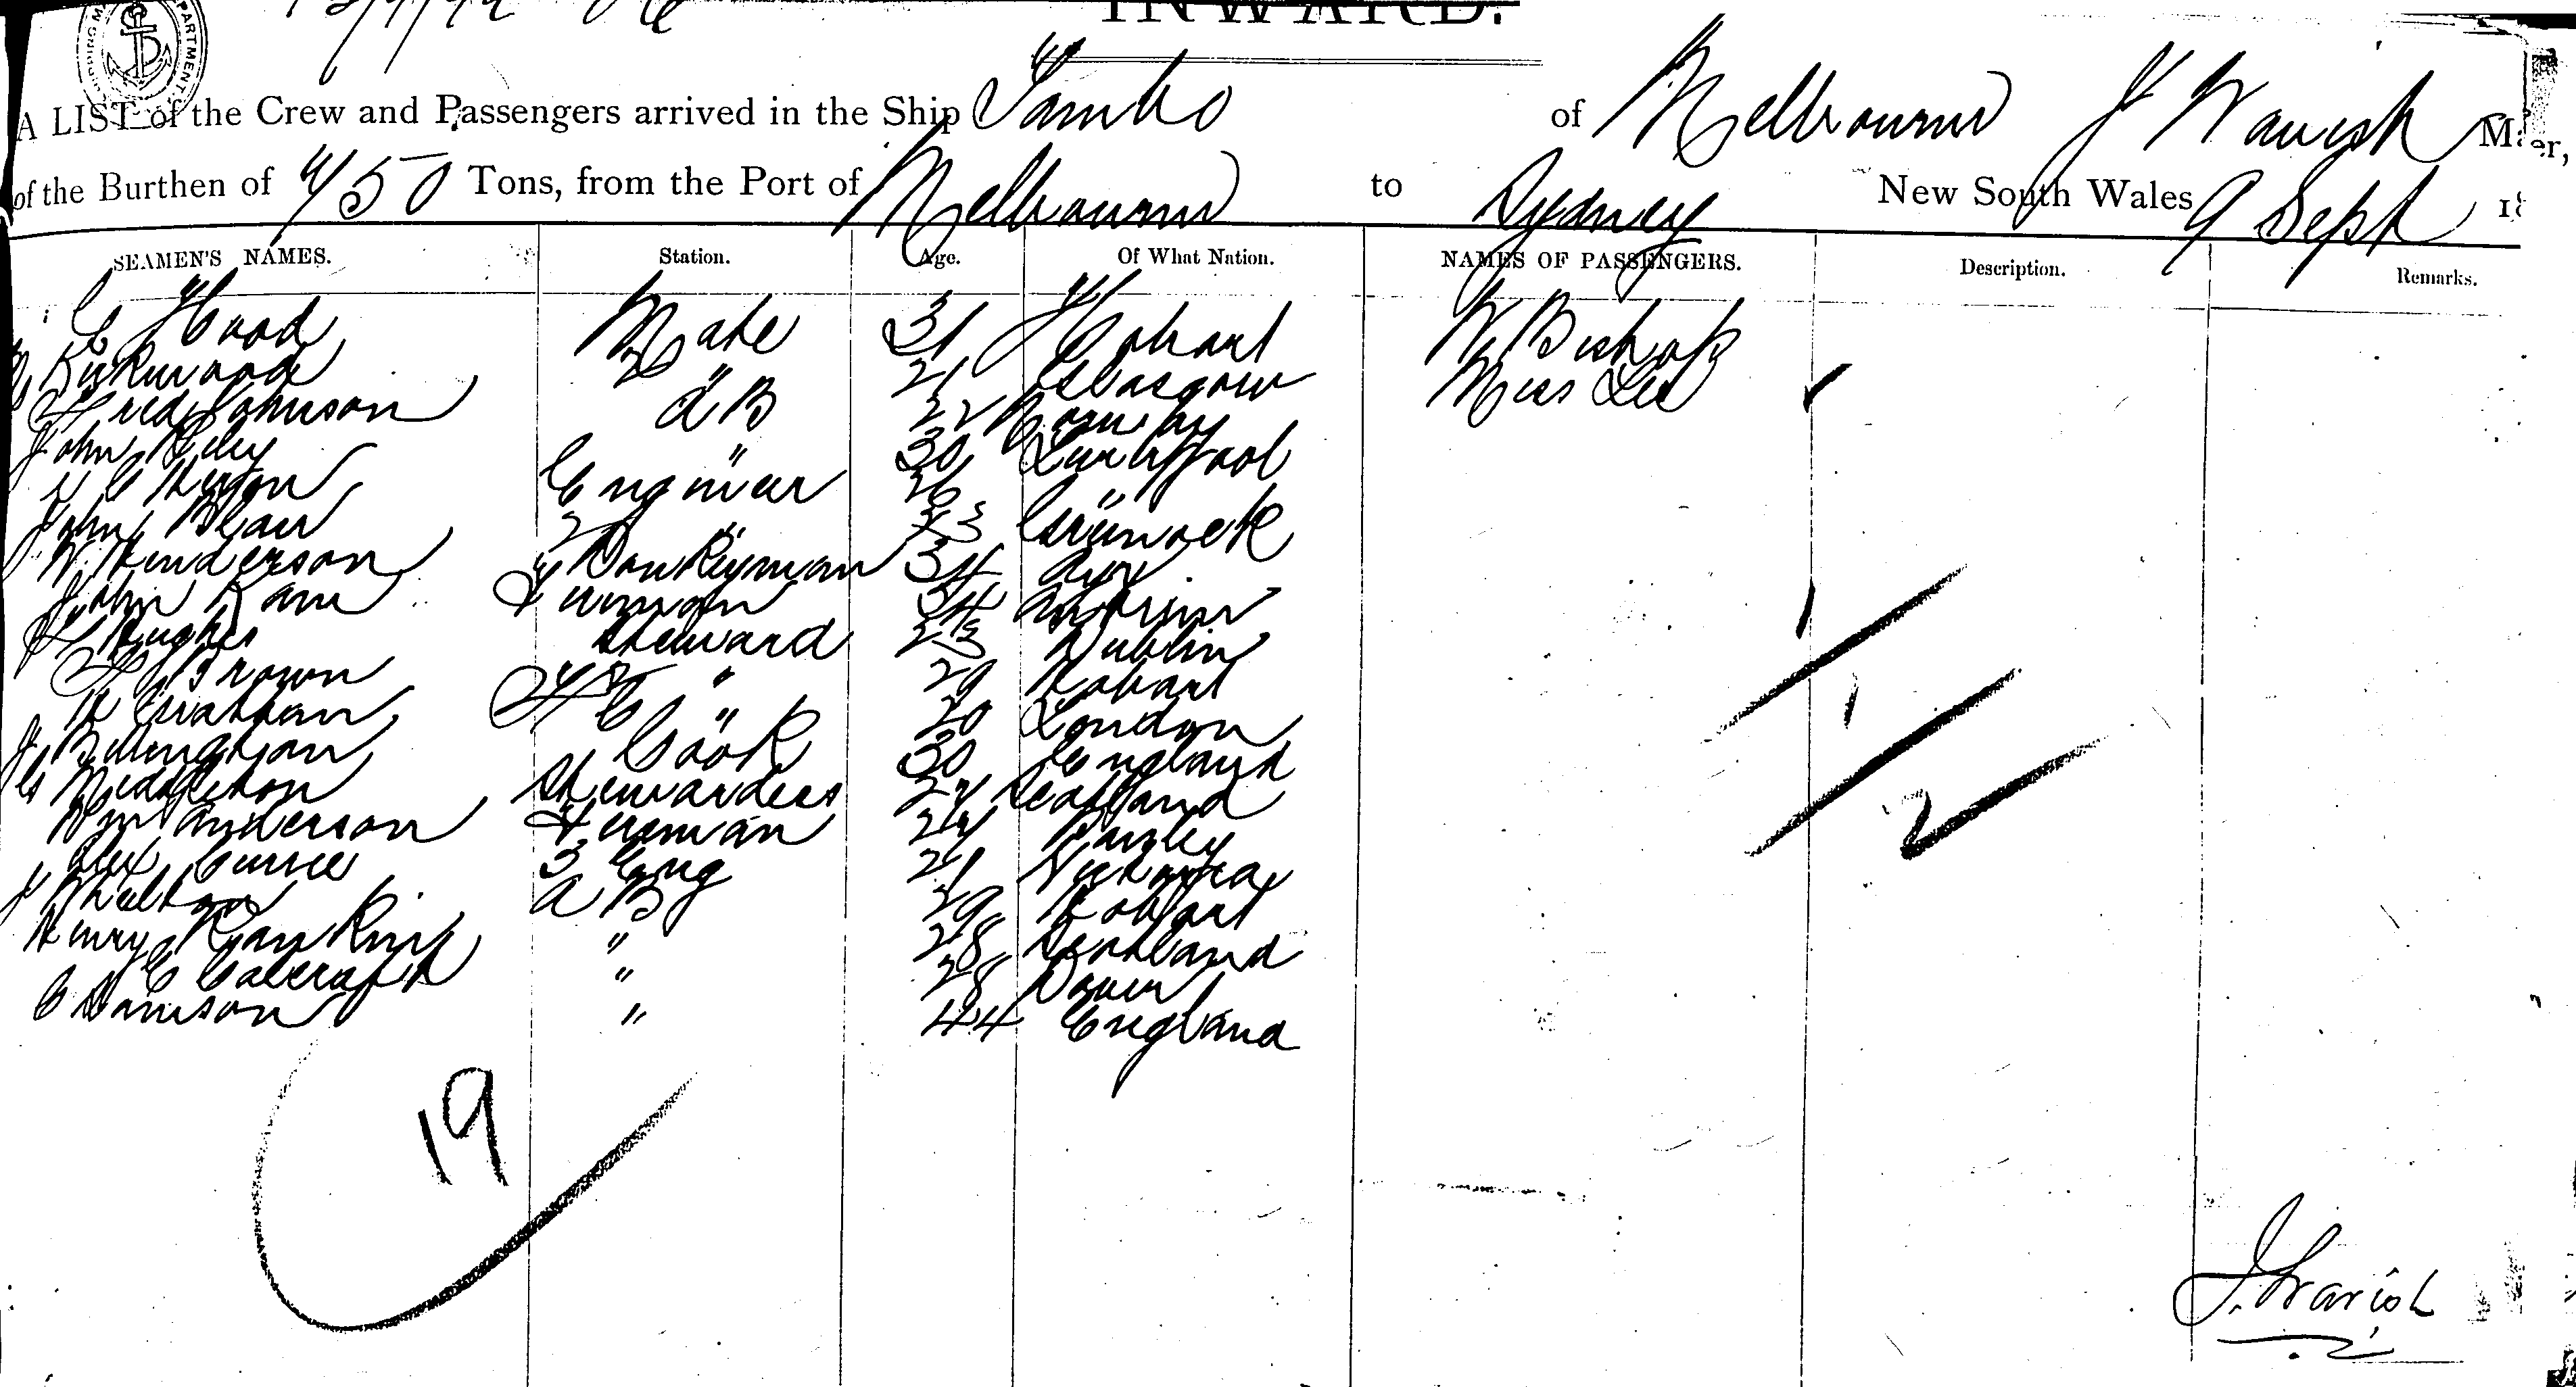 INWARD.
A LIST of the Crew and Passengers arrived in the Ship Tambo of Melbourne J Wavish
of the Burthen of 450 Tons, from the Port of Melbourne to Sydney New South Wales 9 Sept
SEAMEN'S NAMES. Station. Age. Of What Nation. NAMES OF PASSENGERS. Description. Remarks.
C Hood Mate 31 Hobart W Bishop
Kirkwood " 21 Glasgow Miss Lee
Fred Johnson A B 22 Norway
John Riley " 30 Liverpool
Engineer 36 "
John Blair 2 " 33 Greenock
W. Henderson Donkeyman 34 Ayr
John Kane Fireman 34 Antrim
Hughes Steward 23 Dublin
H Brown " 29 Hobart
" 20 London
J Cook 30 England
Middleton Stewardess 27 Scotland
Wm Anderson Fireman 24 Paisley
Alex Currie 3 Eng 21 Victoria
J A B 29 Hobart
Henry Rankin " 28 Scotland
C Calcraft " 28 Dover
C Damson " 44 England
1
1
2
19
J. Wavish